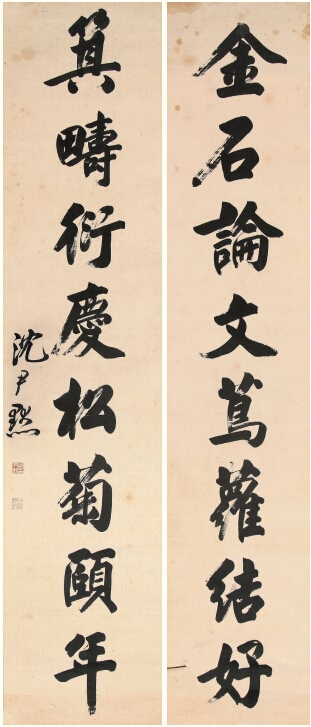 金石論文蔦蘿結好
箕疇衍慶松菊頤年
沈尹默